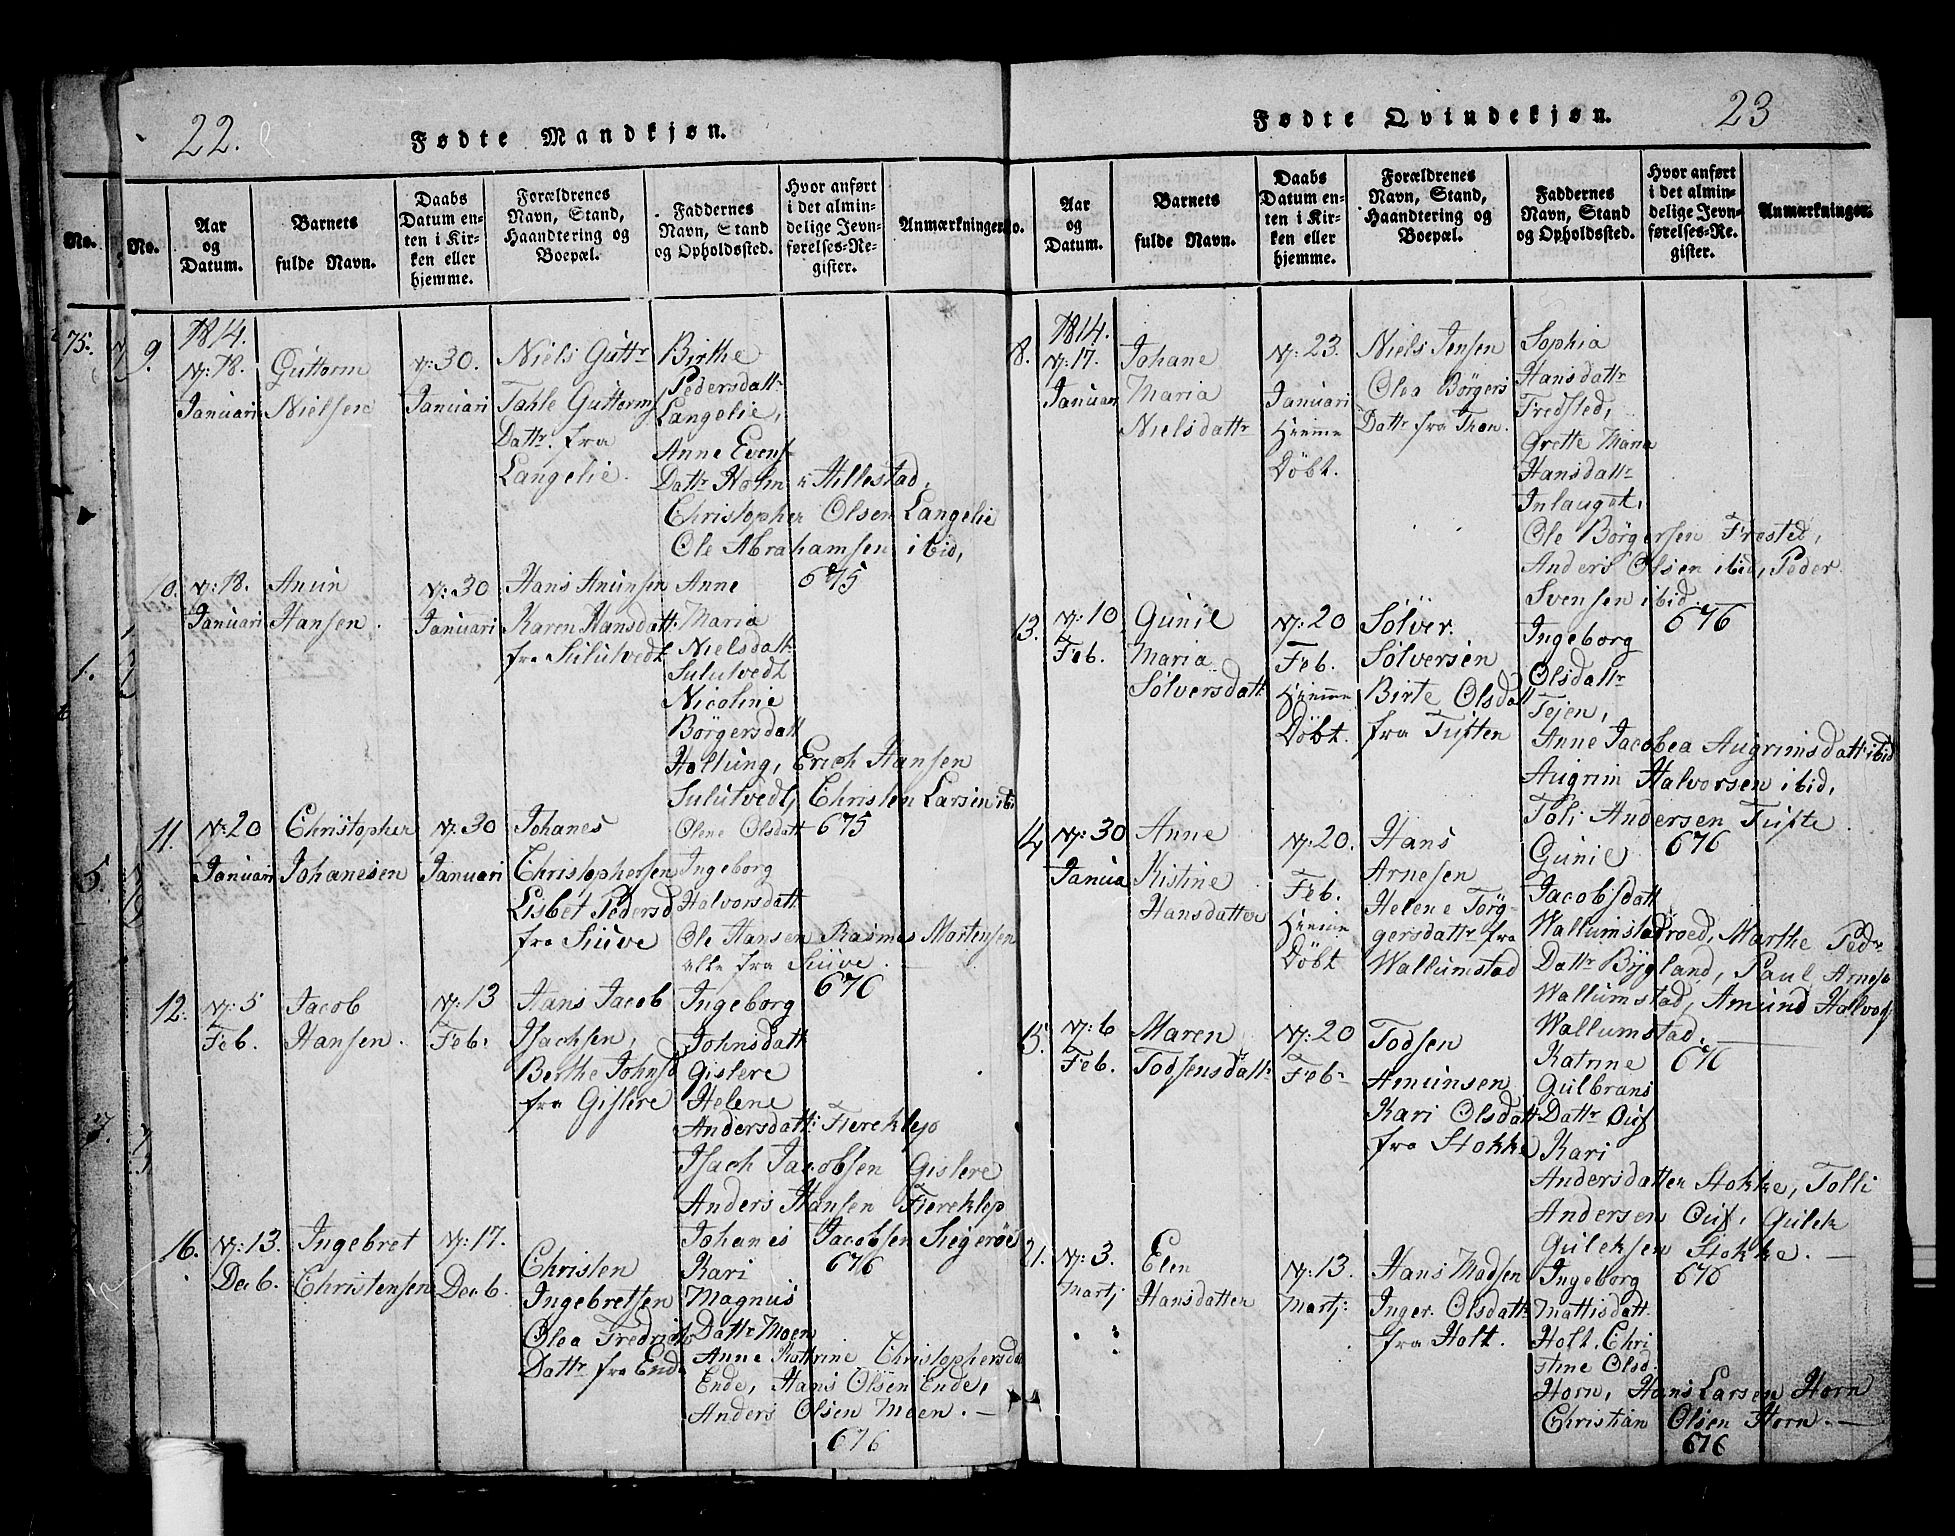 22.
Fødte Mandkjøn.
No.
Aar og Datum.
Barnets fulde Navn.
Daabs Datum enten i Kirken eller hjemme.
Forældrenes Navn, Stand, Haandtering og Boepæl.
Faddernes Navn, Stand og Opholdssted.
Hvor anført i det almindelige Jevnførelses-Register.
Anmærkninger.
9.
1814.
N: 18.
Januari
Guttorm
Nielsen
N: 30.
Januari
Niels Guttr
Tahle Guttorms
Dattr. fra
Langelie.
Birthe
Pedersdattr
Langelie,
Anne Evens
Dattr Holm Hillestad,
Christopher Olsen Langelie
Ole Abrahamsen ibid,
675
10.
N: 18.
Januari
Amun
Hansen.
N: 30
Januari
Hans Amunsen
Karen Hansdatt:
fra Sulutvedt
Anne
Maria
Nielsdatt:
Sulutvedt
Nicoline
Börgersdatt
Hallung, Erich Hansen
Sulutvedt, Christen Larsen ibi
675
11.
N: 20
Januari
Christopher
Johanesen
N: 30
Januari
Johanes
Christophersen
Lisbet Pedersd
fra Siuve
Olene Olsdatt
Ingeborg
Halvorsdatt
Ole Hansen Rasmus Mortensen
alle fra Siuve.
676
12.
N: 5
Feb.
Jacob
Hansen.
N: 13
Feb.
Hans Jacob
Isachsen,
Berthe Johnsd
fra Gislere
Ingeborg
Johnsdatt
Gislere
Helene
Andersdatt: Fiereklep
Isach Jacobsen Gislere
Anders Hansen Fiereklep
Johanes Jacobsen Siegeröe
676
16.
N: 13.
Decb.
Ingebret
Christensen
N: 17.
Decb.
Christen
Ingebretsen
Olea Fredrichs
Dattr fra Ende
Kari
Magnus
Dattr Moen
Anne Kathrine Christophersda
Ende, Hans Olsen Ende,
Anders Olsen Moen.
676
23
Fødte Qvindekjøn.
No.
Aar og Datum.
Barnets fulde Navn.
Daabs Datum enten i Kirken eller hjemme.
Forældrenes Navn, Stand, Haandtering og Boepæl.
Faddernes Navn, Stand og Opholdssted.
Hvor anført i det almindelige Jevnførelses-Register.
Anmærkninger.
8.
1814.
N: 17.
Januari
Johane
Maria
Nielsdattr
N: 23.
Januari
Hiemme
Döbt.
Niels Jensen
Olea Börgers
Dattr fra Thon.
Sophia
Hansdattr
Fredsted,
Grette Maria
Hansdattr
Inlauget,
Ole Börgersen Frested,
Anders Olsen ibid, Peder
Svensen ibid.
676
13.
N: 10
Feb.
Gunil
Maria
Sölversdatt
N: 20
Feb.
Hiemme
Döbt.
Sölver
Sölversen
Birte Olsdatt
fra Tuften
Ingeborg
Olsdattr
Tejen,
Anne Jacobea Augrimsdatt ibid
Augrim Halvorsen ibid,
Toli Andersen Tufte.
676
14
N: 30
Janua
Anne
Kistine
Hansdatter
N: 20.
Feb.
Hiemme
Döbt
Hans
Arnesen
Helene Törg-
gersdattr fra
Wallumstad
Gunil
Jacobsdatt
Wallumstadroed, Marthe Ped
Dattr Bygland, Paul Arnes
Wallumstad, Amund Halvors
Wallumstad.
676
15.
N: 6
Feb.
Maren
Todsensdattr
N: 20
Feb
Todsen
Amunsen
Kari Olsdatt
fra Stokke
Katrine
Gulbrans
Dattr Ouf
Kari
Andersdatter Stokke, Tolli
Andersen Ouf, Gulek
Guleksen Stokke.
676
21.
N: 3.
Martj
Elen
Hansdatter
N: 13.
Martj:
Hans Madsen
Inger Olsdatt
fra Holt.
Ingeborg
Mattisdatt
Holt, Chri
stine Olsd.
Horn, Hans Larsen Horn
Christian Olsen Horn.
676